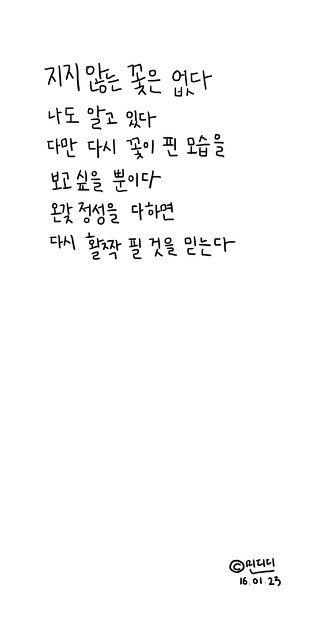 지지 않는 꽃은 없다
나도 알고 있다
다만 다시 꽃이 핀 모습을
보고 싶을 뿐이다
온갖 정성을 다하면
다시 활짝 필 것을 믿는다
©민디디
16.01.23